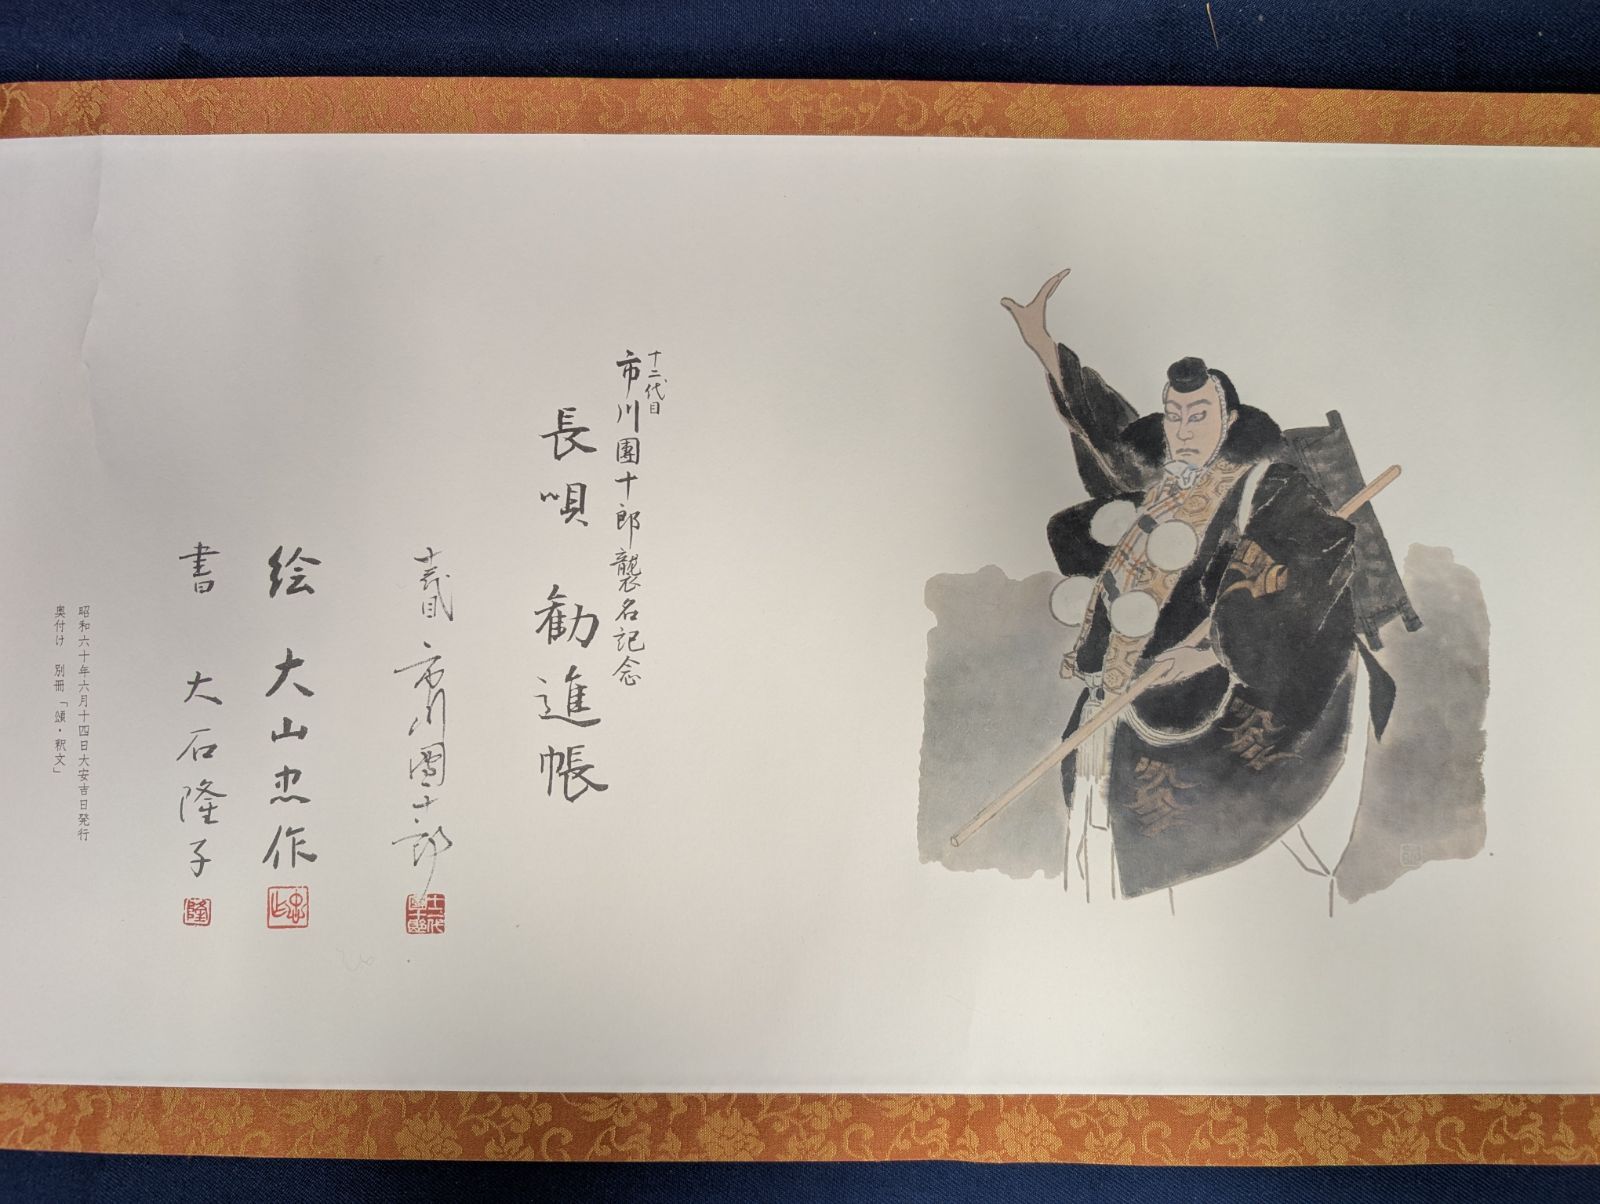 十二代目
市川團十郎襲名記念
長唄 勧進帳
十二代目 市川團十郎
十二代団十郎
絵 大山忠作
忠
書 大石隆子
隆
昭和六十年六月十四日大安吉日発行
奥付け 別冊「頌・釈文」